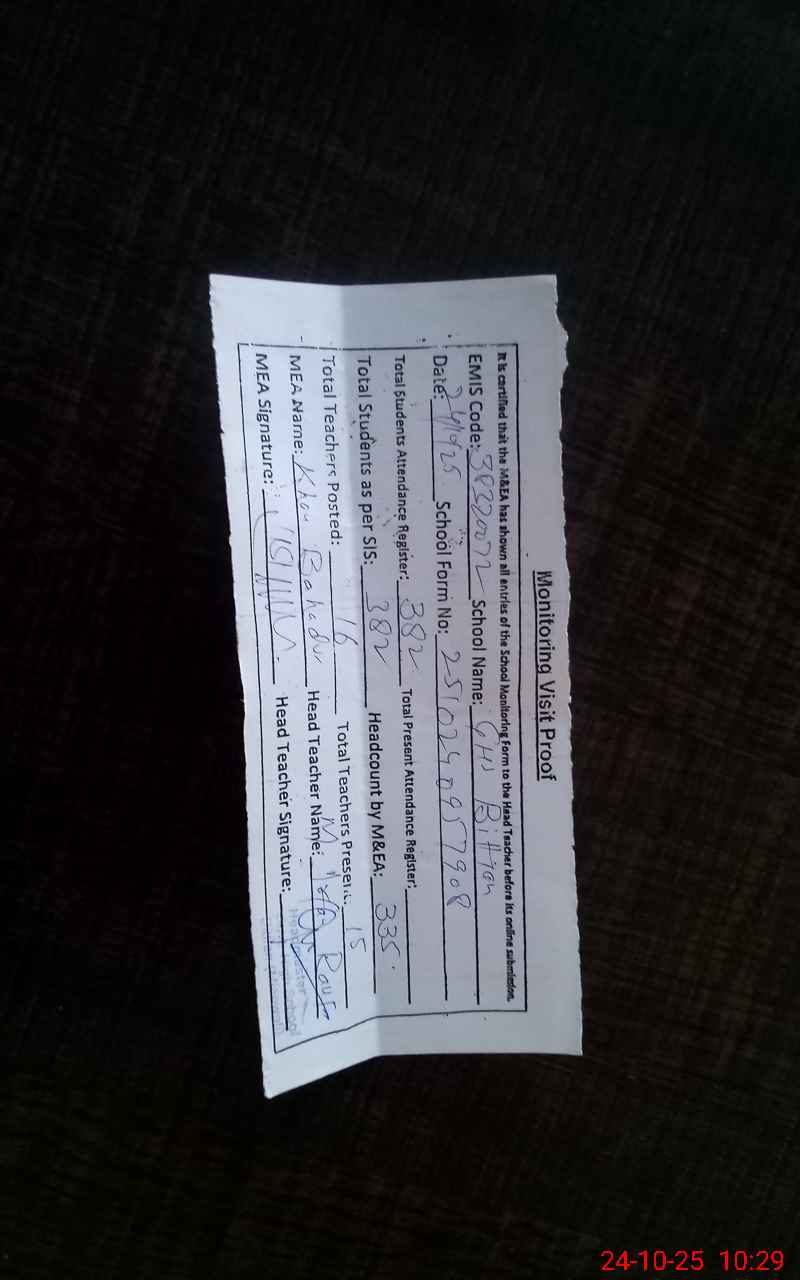 Monitoring Visit Proof
It is certified that the M&EA has shown all entries of the School Monitoring Form to the Head Teacher before its online submission.
EMIS Code: 38320072 School Name: GHS Bittran
Date: 24/10/25 School Form No: 2510240957908
Total Students Attendance Register: 382 Total Present Attendance Register:
Total Students as per SIS: 382 Headcount by M&EA: 335.
Total Teachers Posted: 16 Total Teachers Present: 15
MEA Name: Khan Bahadur Head Teacher Name: M. Rauf
MEA Signature: Head Teacher Signature:
Headmaster
24-10-25 10:29